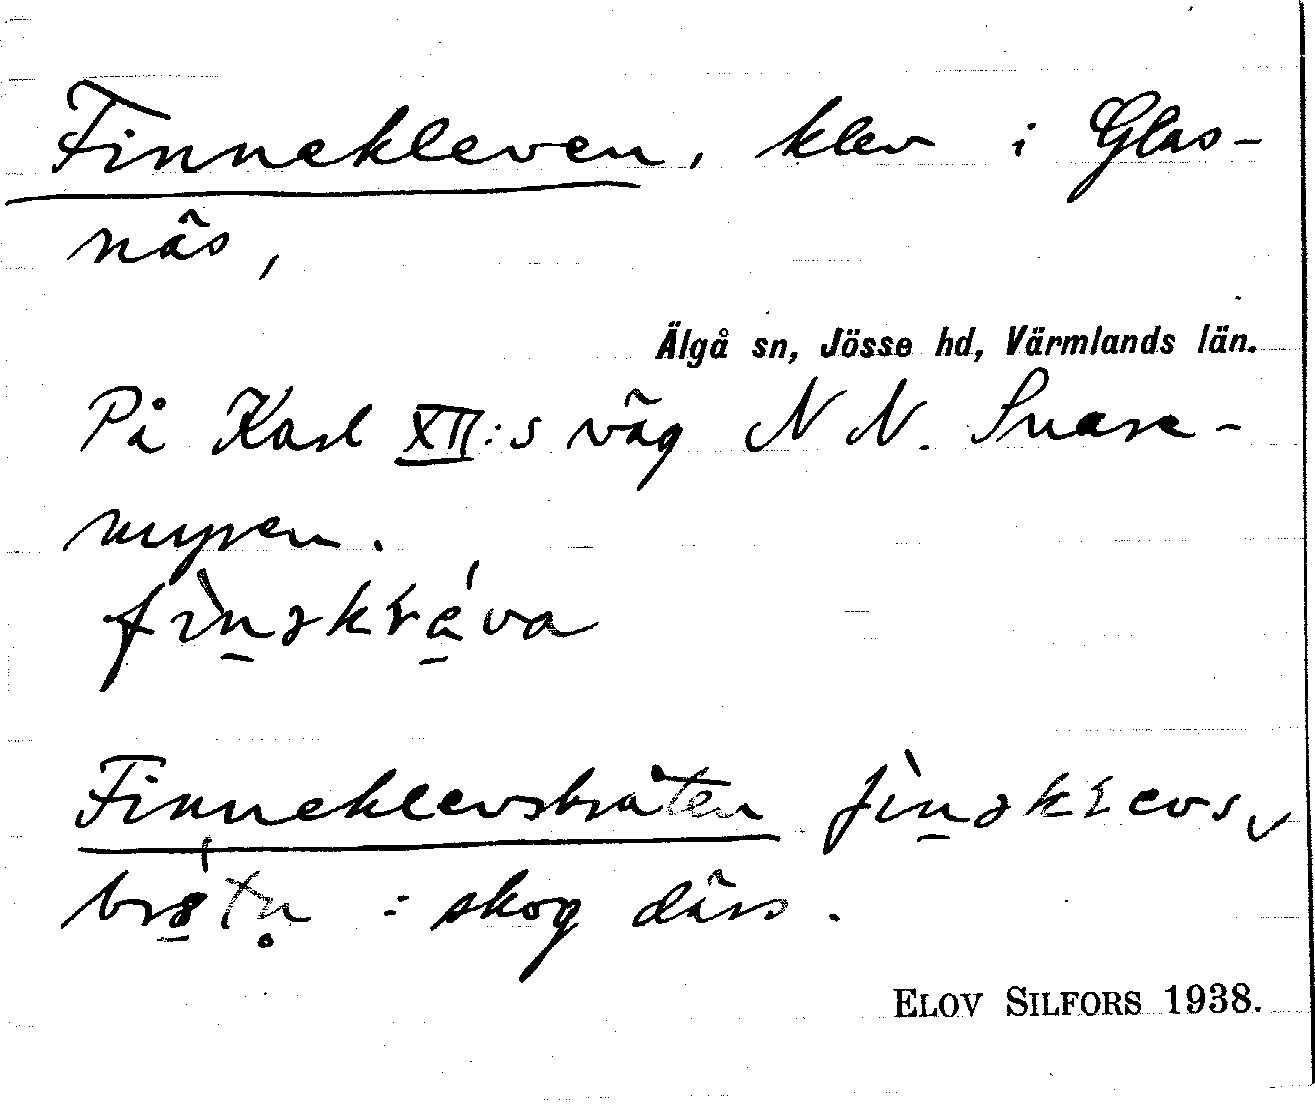 Finnekleven, klev i Glas-
näs,
Älgå sn, Jösse hd, Värmlands län.
På Karl XII:s väg N N. Snare-
myren.
fìn̲əkɽé̲va
Finneklevsbråten fìn̲əkɽevs
brö̲́tn̥ : skog därs.
ELOV SILFORS 1938.